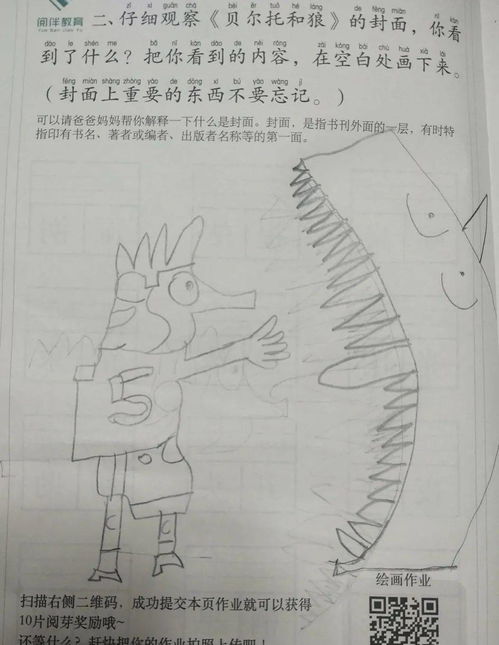 阅伴教育
zǐ xì guān chá bèi ěr tuō hé láng de fēng miàn nǐ kàn
二、仔细观察《贝尔托和狼》的封面，你看
dào le shén me bǎ nǐ kàn dào de nèi róng zài kòng bái chù huà xià lái
到了什么？把你看到的内容，在空白处画下来。
fēng miàn shàng zhòng yào de dōng xi bú yào wàng jì
（封面上重要的东西不要忘记。）
可以请爸爸妈妈帮你解释一下什么是封面。封面，是指书刊外面的一层，有时特
指印有书名、著者或编者、出版者名称等的第一面。
5
绘画作业
扫描右侧二维码，成功提交本页作业就可以获得
10片阅芽奖励哦~
还等什么？赶快把你的作业拍照上传吧！